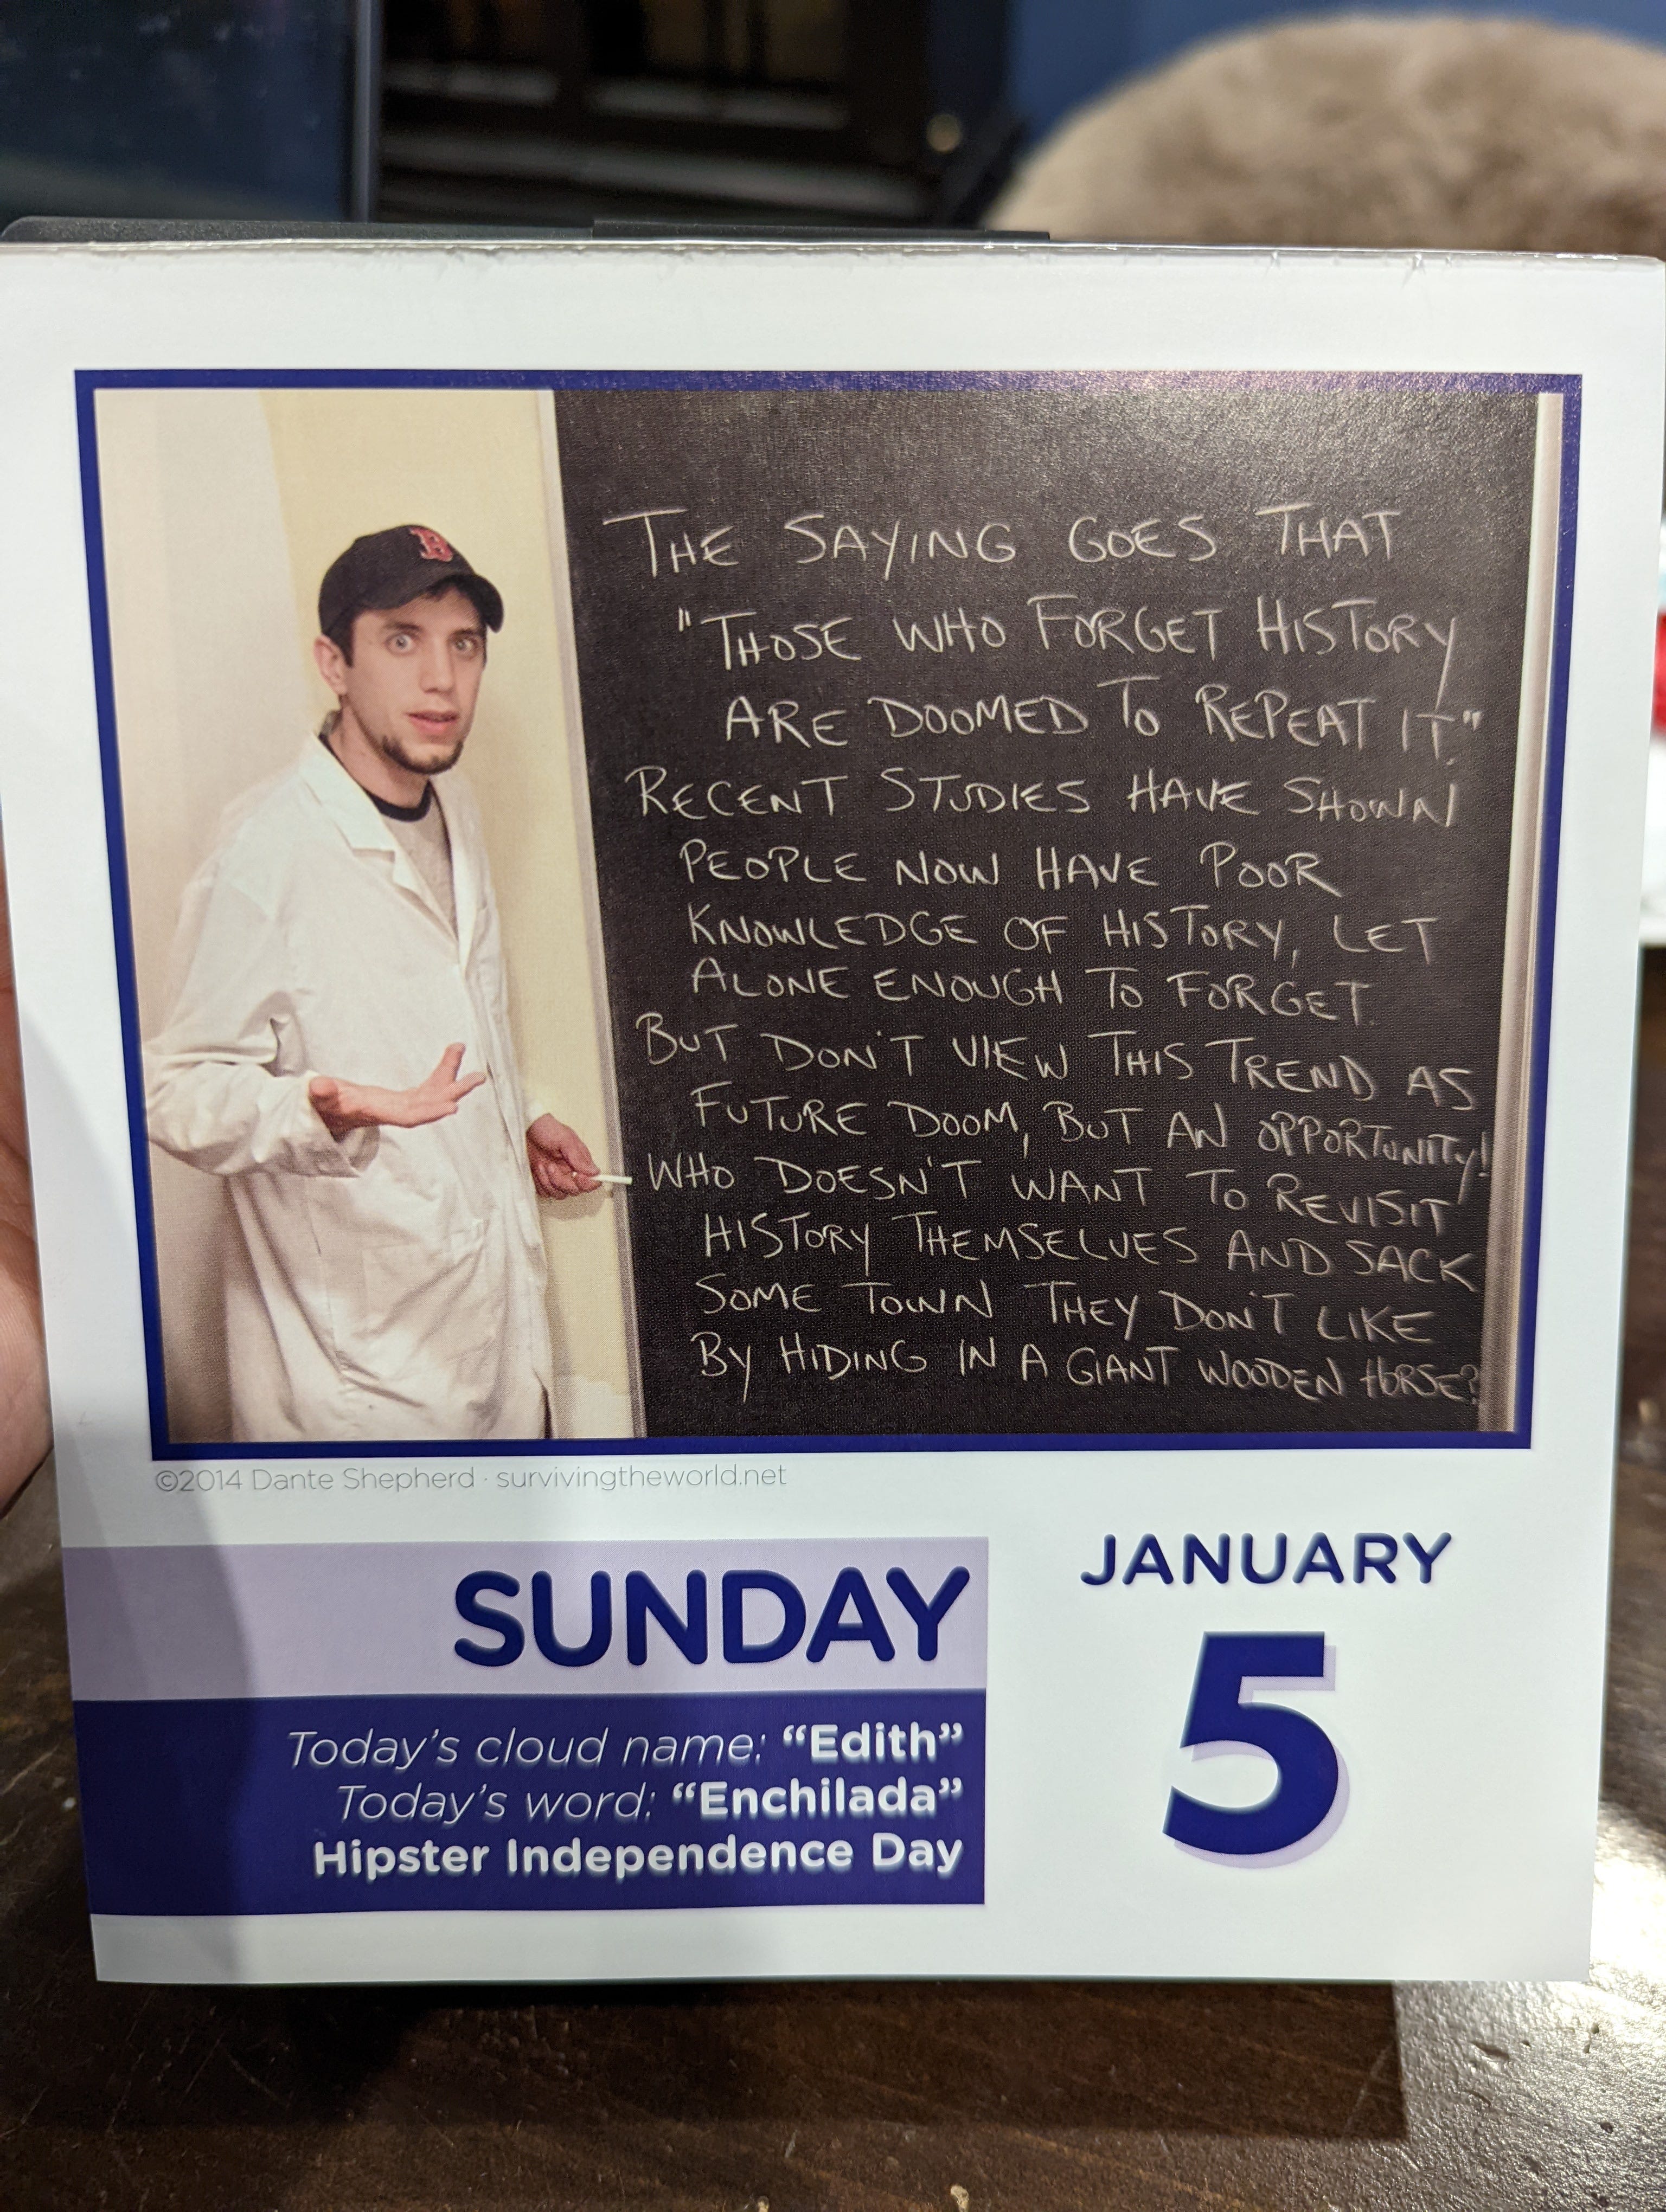 B
THE SAYING GOES THAT
"THOSE WHO FORGET HISTORY
ARE DOOMED TO REPEAT IT."
RECENT STUDIES HAVE SHOWN
PEOPLE NOW HAVE POOR
KNOWLEDGE OF HISTORY, LET
ALONE ENOUGH TO FORGET.
BUT DON'T VIEW THIS TREND AS
FUTURE DOOM, BUT AN OPPORTUNITY!
WHO DOESN'T WANT TO REVISIT
HISTORY THEMSELVES AND SACK
SOME TOWN THEY DON'T LIKE
BY HIDING IN A GIANT WOODEN HORSE?
©2014 Dante Shepherd · survivingtheworld.net
SUNDAY
JANUARY
5
Today's cloud name: “Edith”
Today's word: “Enchilada”
Hipster Independence Day